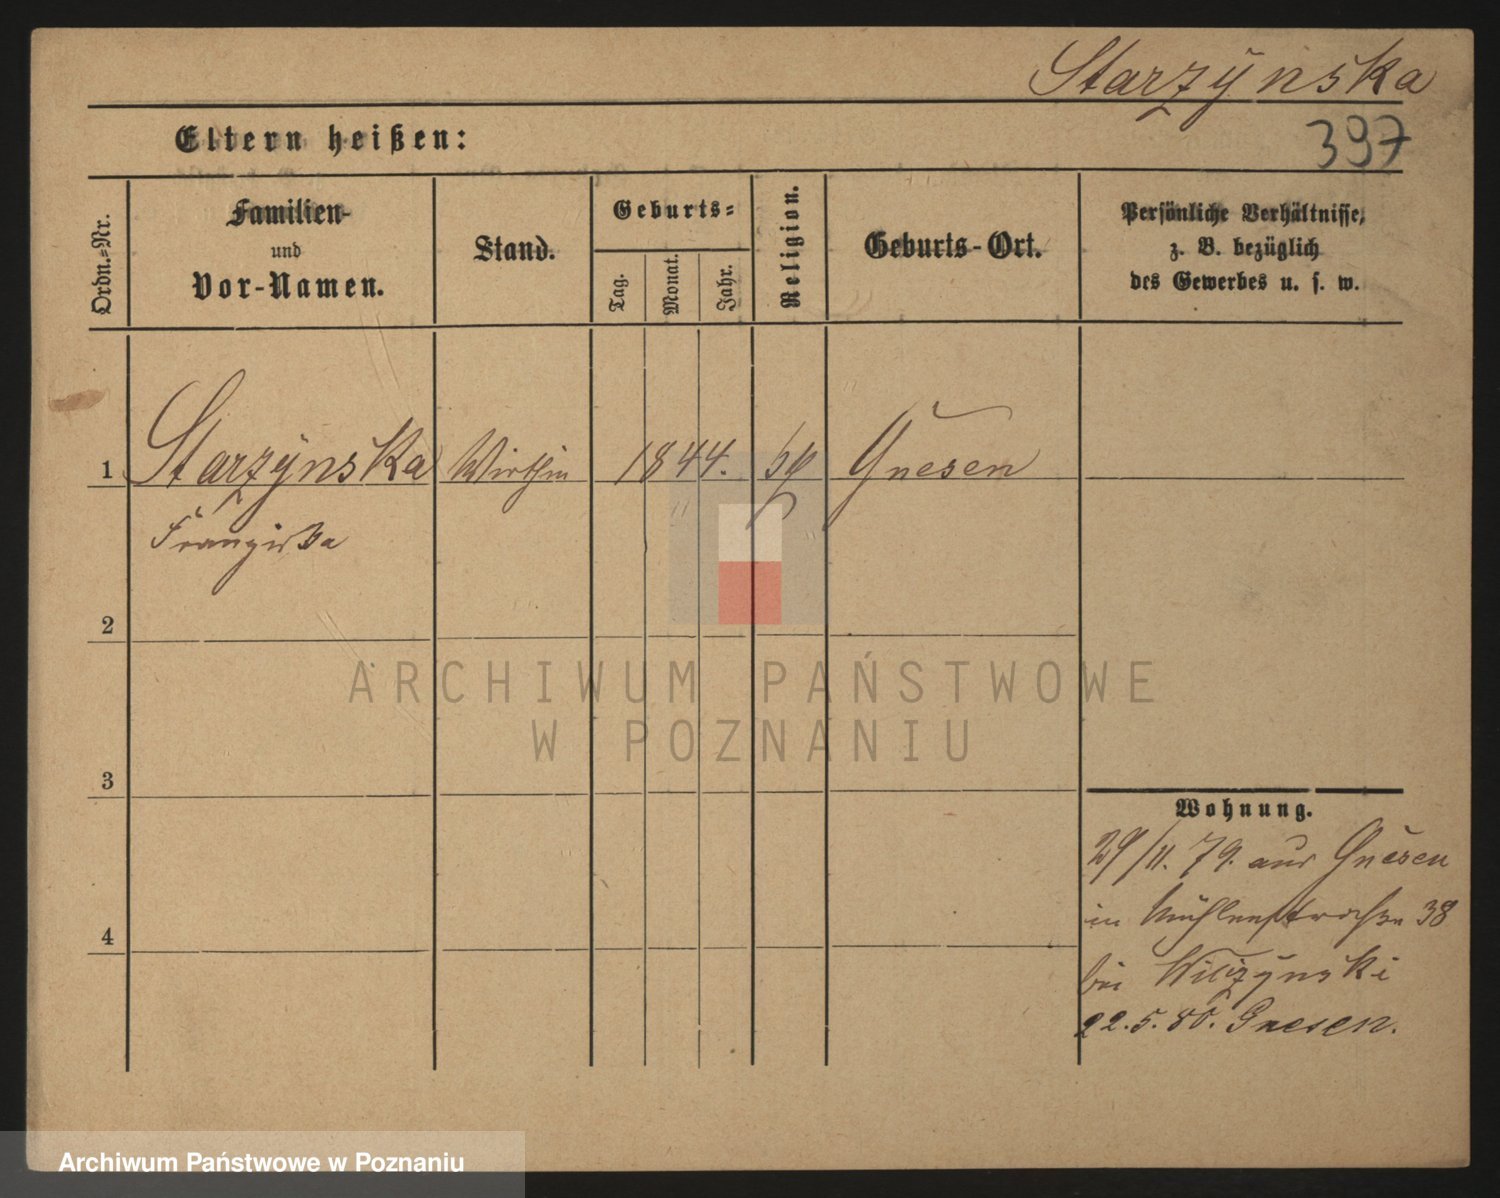 Starzynska
397
Eltern heißen:
Ordn.=Nr.
Familien-
und
Vor-Namen.
Stand.
Geburts=
Tag.
Monat.
Jahr.
Religion.
Geburts-Ort.
Persönliche Verhältnisse,
z. B. bezüglich
des Gewerbes u. s. w.
1 Starzynska Wirthin 1844. Gnesen
Franziska
2
3
4
Wohnung.
29/11. 79. aus Gnesen
in Mühlenstraße 38
bei Wilczynski
22.5.80. Gnesen.
ARCHIWUM PAŃSTWOWE
W POZNANIU
Archiwum Państwowe w Poznaniu